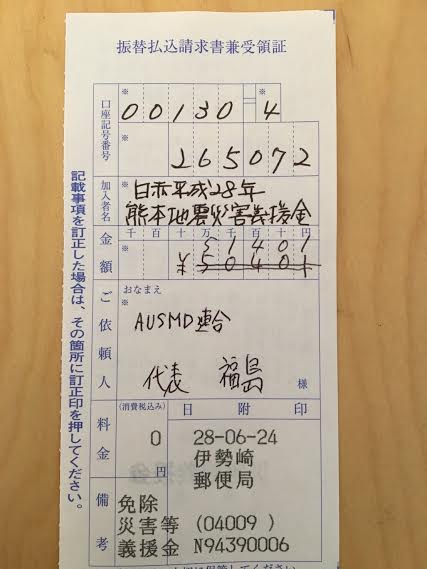 振替払込請求書兼受領証
口座記号番号
※ 00130 ※ 4
※ 265072
加入者名
※ 日赤平成28年
熊本地震災害義援金
金額
千 百 十 万 千 百 十 円
51401
¥50401
ご依頼人
おなまえ
※
AUSMD連合
代表 福島
様
料金
(消費税込み)
0 円
日 附 印
28-06-24
伊勢崎
郵便局
備考
免除
災害等 (04009 )
義援金 N94390006
記載事項を訂正した場合は、その箇所に訂正印を押してください。